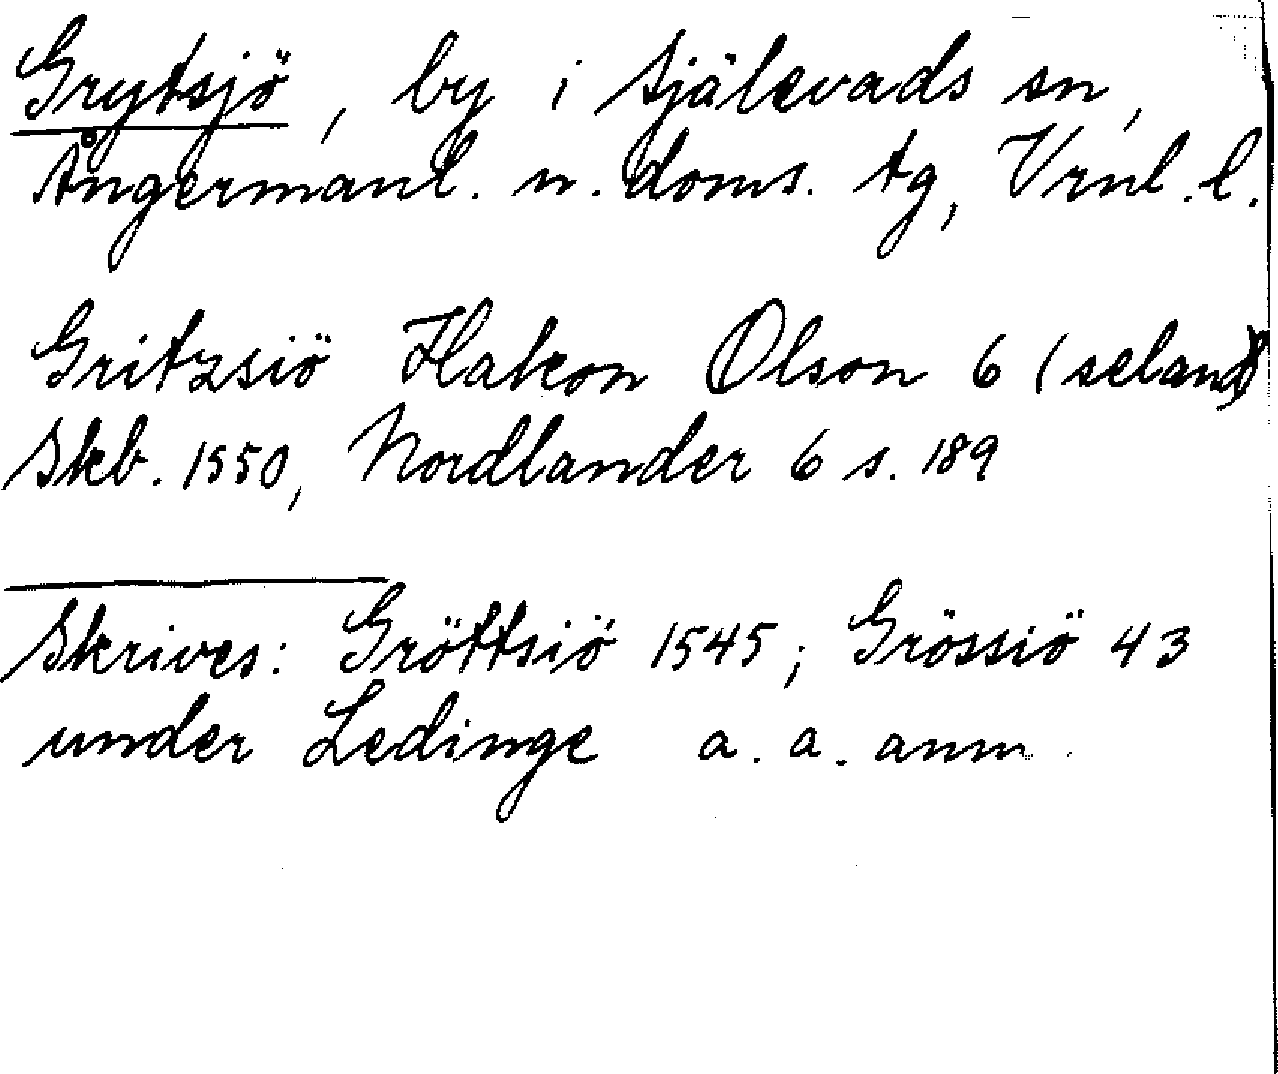 Grytsjö, by i Själevads sn,
Ångermanl. n. doms. tg, Vrnl. l.
Gritzsiö Hakon Olson 6 (seland)
Skb. 1550, Nordlander 6 s. 189
Skrives: Gröttsiö 1545; Grössiö 43
under Ledinge a. a. anm.